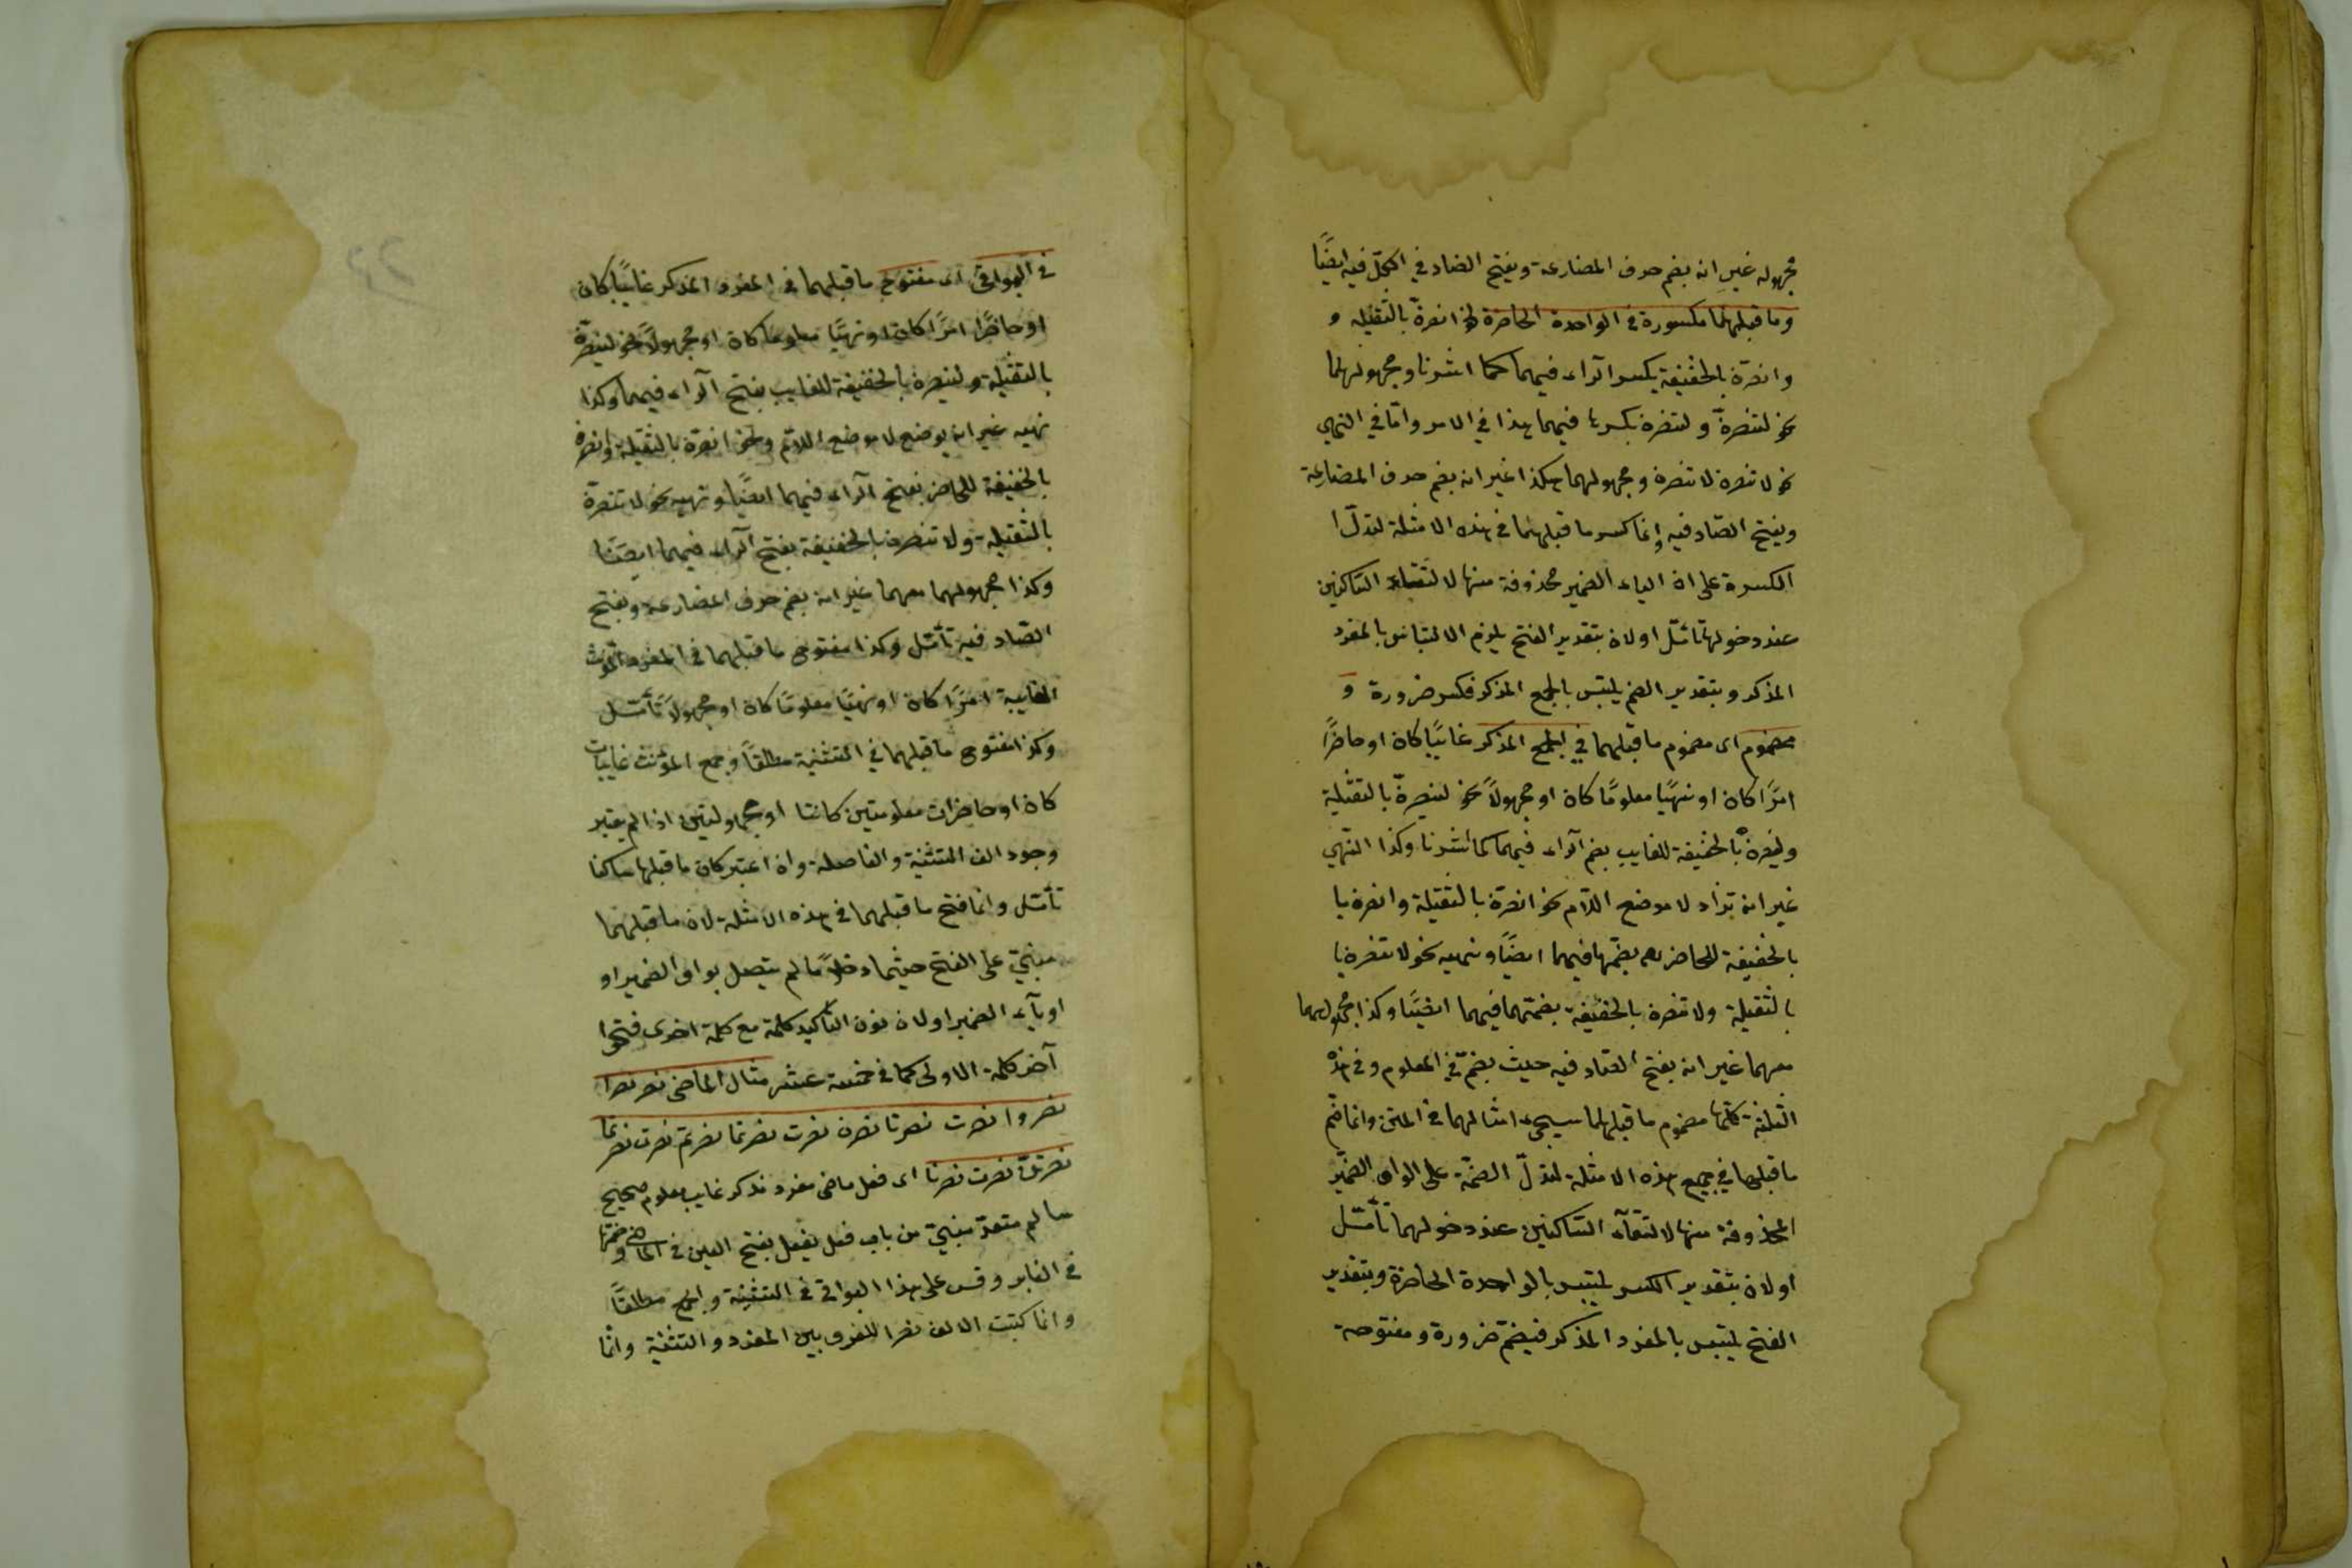 مجهوله غير انه بضم حرف المضارعة ويفتح الضاد في الكل فيه ايضًا
وما قبلهما مكسورة في الواحدة الحاضرة نحو انصرنّ بالثقيله و
وانصرن بالخفيفة بكسر الراء فيهما كما اشرنا ومجهولهما
نحو لتنصرنّ ولتنصرن بكسرها فيهما هذا في الامر وامّا في النهى
نحو لا تنصرن لا تنصرن ومجهولهما هكذا غير انه بضم حرف المضارعة
ويفتح الصّاد فيه وإنما كسر ما قبلهما في هذه الامثلة لتدلّ ا
الكسرة على ان الياء الضمير محذوفة منها لالتقاء الساكنين
عند دخولها تأمّل اولان بتقدير الفتح يلزم الالتباس بالمفرد
المذكر وبتقدير الضم يلتبس بالجمع المذكر فكسر ضرورة و
مضموم اى مضموم ما قبلهما في الجمع المذكر غائبًا كان او حاضرًا
امرًا كان او نهيًا معلومًا كان او مجهولاً نحو لينصرنّ بالثقيلة
ولينصرنْ بالخفيفة للغايب بضم الراء فيهما كما اشرنا وكذا النهى
غير انه تزاد لا موضع اللام نحو انصرنّ بالثقيلة وانصرن با
بالخفيفة للحاضر بضمّها فيهما ايضًا ونهيه نحو لا تنصرن با
بالثقيلة ولا تنصرن بالخفيفة بضمتهما فيهما ايضًا وكذا مجهولهما
معهما غير انه يفتح الصّاد فيه حيث يضمّ في المعلوم وفي هذه
الثلثة كلّها مضموم ما قبلهما سيجىء امثالهما في المتن وانما ضم
ما قبلهما في جميع هذه الامثلة لتدلّ الضمّة على الواو الضمير
المحذوفة منها لالتقآء السّاكنين عند دخولهما تأمّل
اولان بتقدير الكسر يلتبس بالواحدة الحاضرة وبتقدير
الفتح يلتبس بالمفرد المذكر فيضمّ ضرورة ومفتوحة
في البواقى اى مفتوح ما قبلهما في المفرد المذكر غايبًا كان
او حاضرًا امرًا كان او نهيًا معلومًا كان او مجهولاً نحو لينصرنّ
بالثقيلة ولينصرن بالخفيفة للغايب بفتح الراء فيهما وكذا
نهيه غير انه يوضع لا موضع اللام ونحو انصرنّ بالثقيلة وانصرن
بالخفيفة للحاضر بفتح الراء فيهما ايضًا ونهيه نحو لا تنصرنّ
بالثقيلة ولا تنصرن بالخفيفة بفتح الراء فيهما ايضًا
وكذا مجهولهما معهما غير انه بضم حرف المضارعة ويفتح
الصّاد فيه تأمّل وكذا مفتوح ما قبلهما في المفرد المؤنث
الغايبة امرًا كان او نهيًا معلومًا كان او مجهولاً تأمّل
وكذا مفتوح ما قبلهما في التثنية مطلقًا وجمع المؤنث غايبات
كان او حاضرات معلومتين كانتا او مجهولتين اذا لم يعتبر
وجود الف التثنية والفاصلة وان اعتبر كان ما قبلها ساكنا
تأمّل وانما فتح ما قبلهما في هذه الامثلة لان ما قبلهما
مبنىّ على الفتح حيثما دخلا ما لم يتصل بواو الضمير او
او يآء الضمير اولان نون التأكيد كلمة مع كلمة اخرى فتحوا
آخر كلمة الاولى كما في خمسة عشر مثال الماضى نصر نصرا
نصروا نصرت نصرتا نصرن نصرت نصرتما نصرتم نصرت نصرتما
نصرتنّ نصرت نصرنا اى فعل ماضى مفرد مذكر غايب معلوم صحيح
سالم متعدّ مبنىّ من باب فعل يفعل بفتح العين في الماضى وضمّها
في الغابر وقس على هذا البواقى في التثنية والجمع مطلقًا
وانما كتبت الالف نصرا للفرق بين المفرد والتثنية وانّما